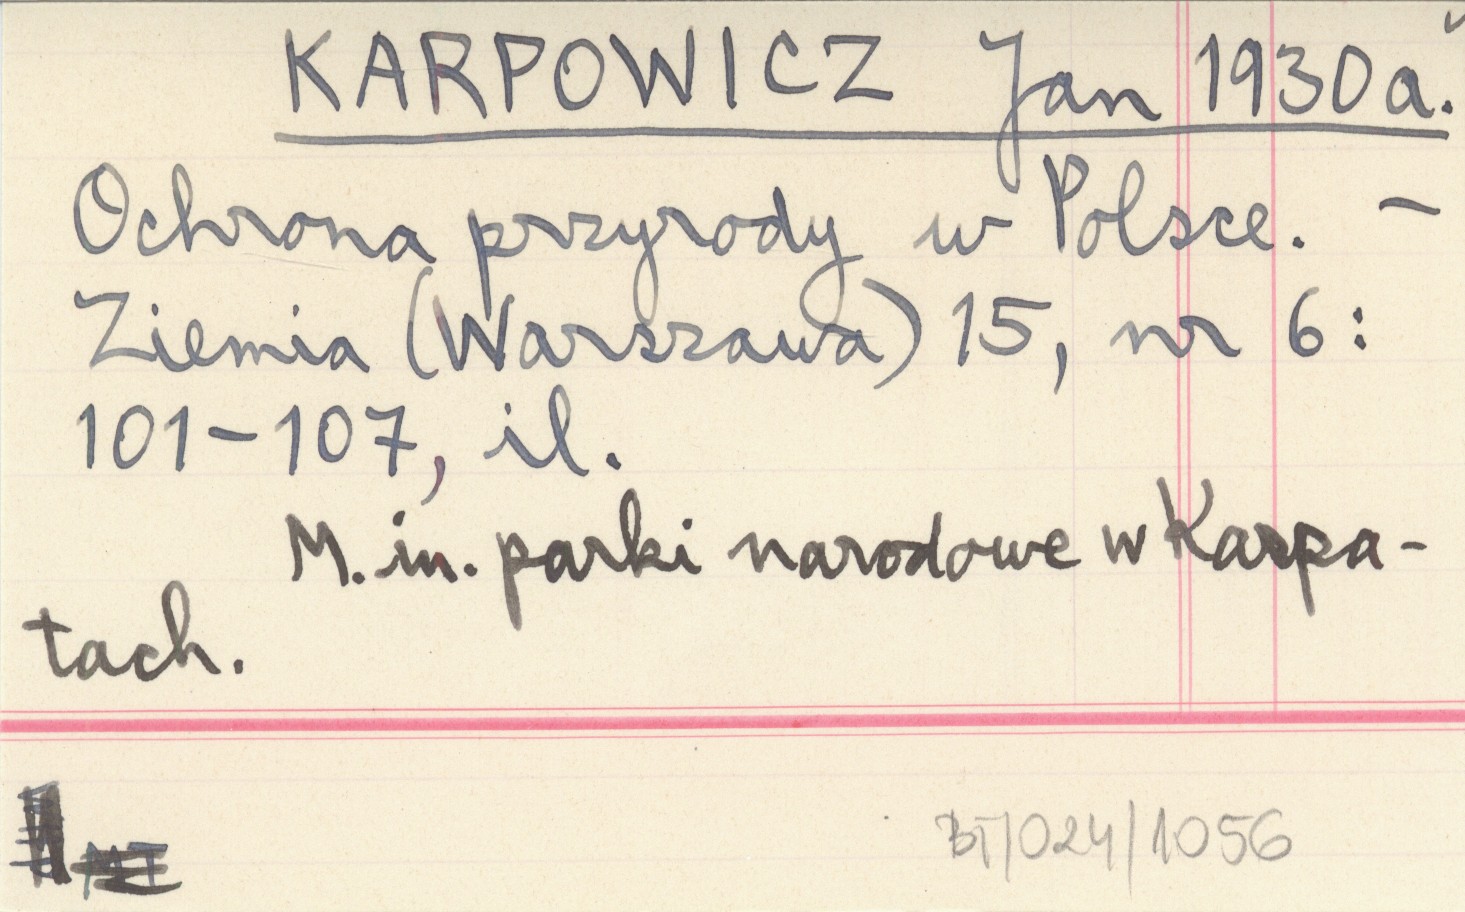 KARPOWICZ Jan 1930a.
Ochrona przyrody w Polsce. –
Ziemia (Warszawa) 15, nr 6:
101–107, il.
M. in. parki narodowe w Karpa-
tach.
BT/024/1056